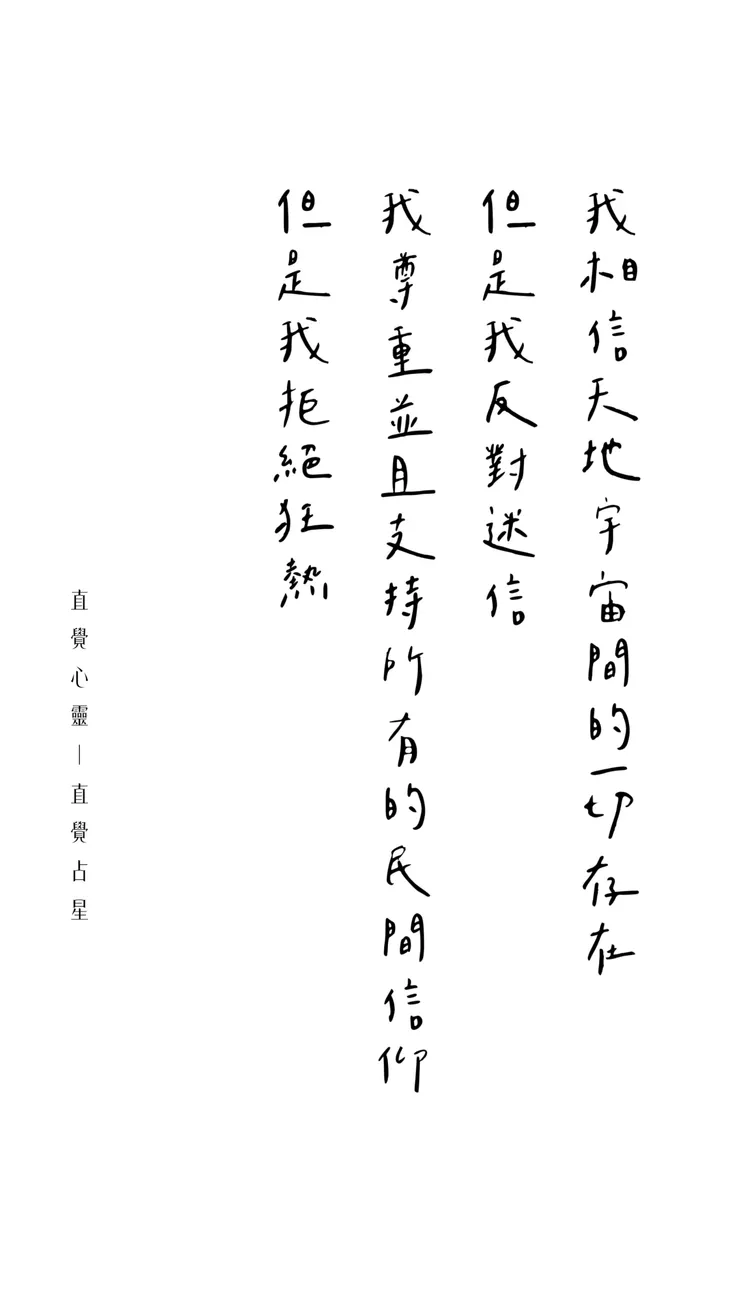 我相信天地宇宙間的一切存在
但是我反對迷信
我尊重並且支持所有的民間信仰
但是我拒絕狂熱
直覺心靈—直覺占星